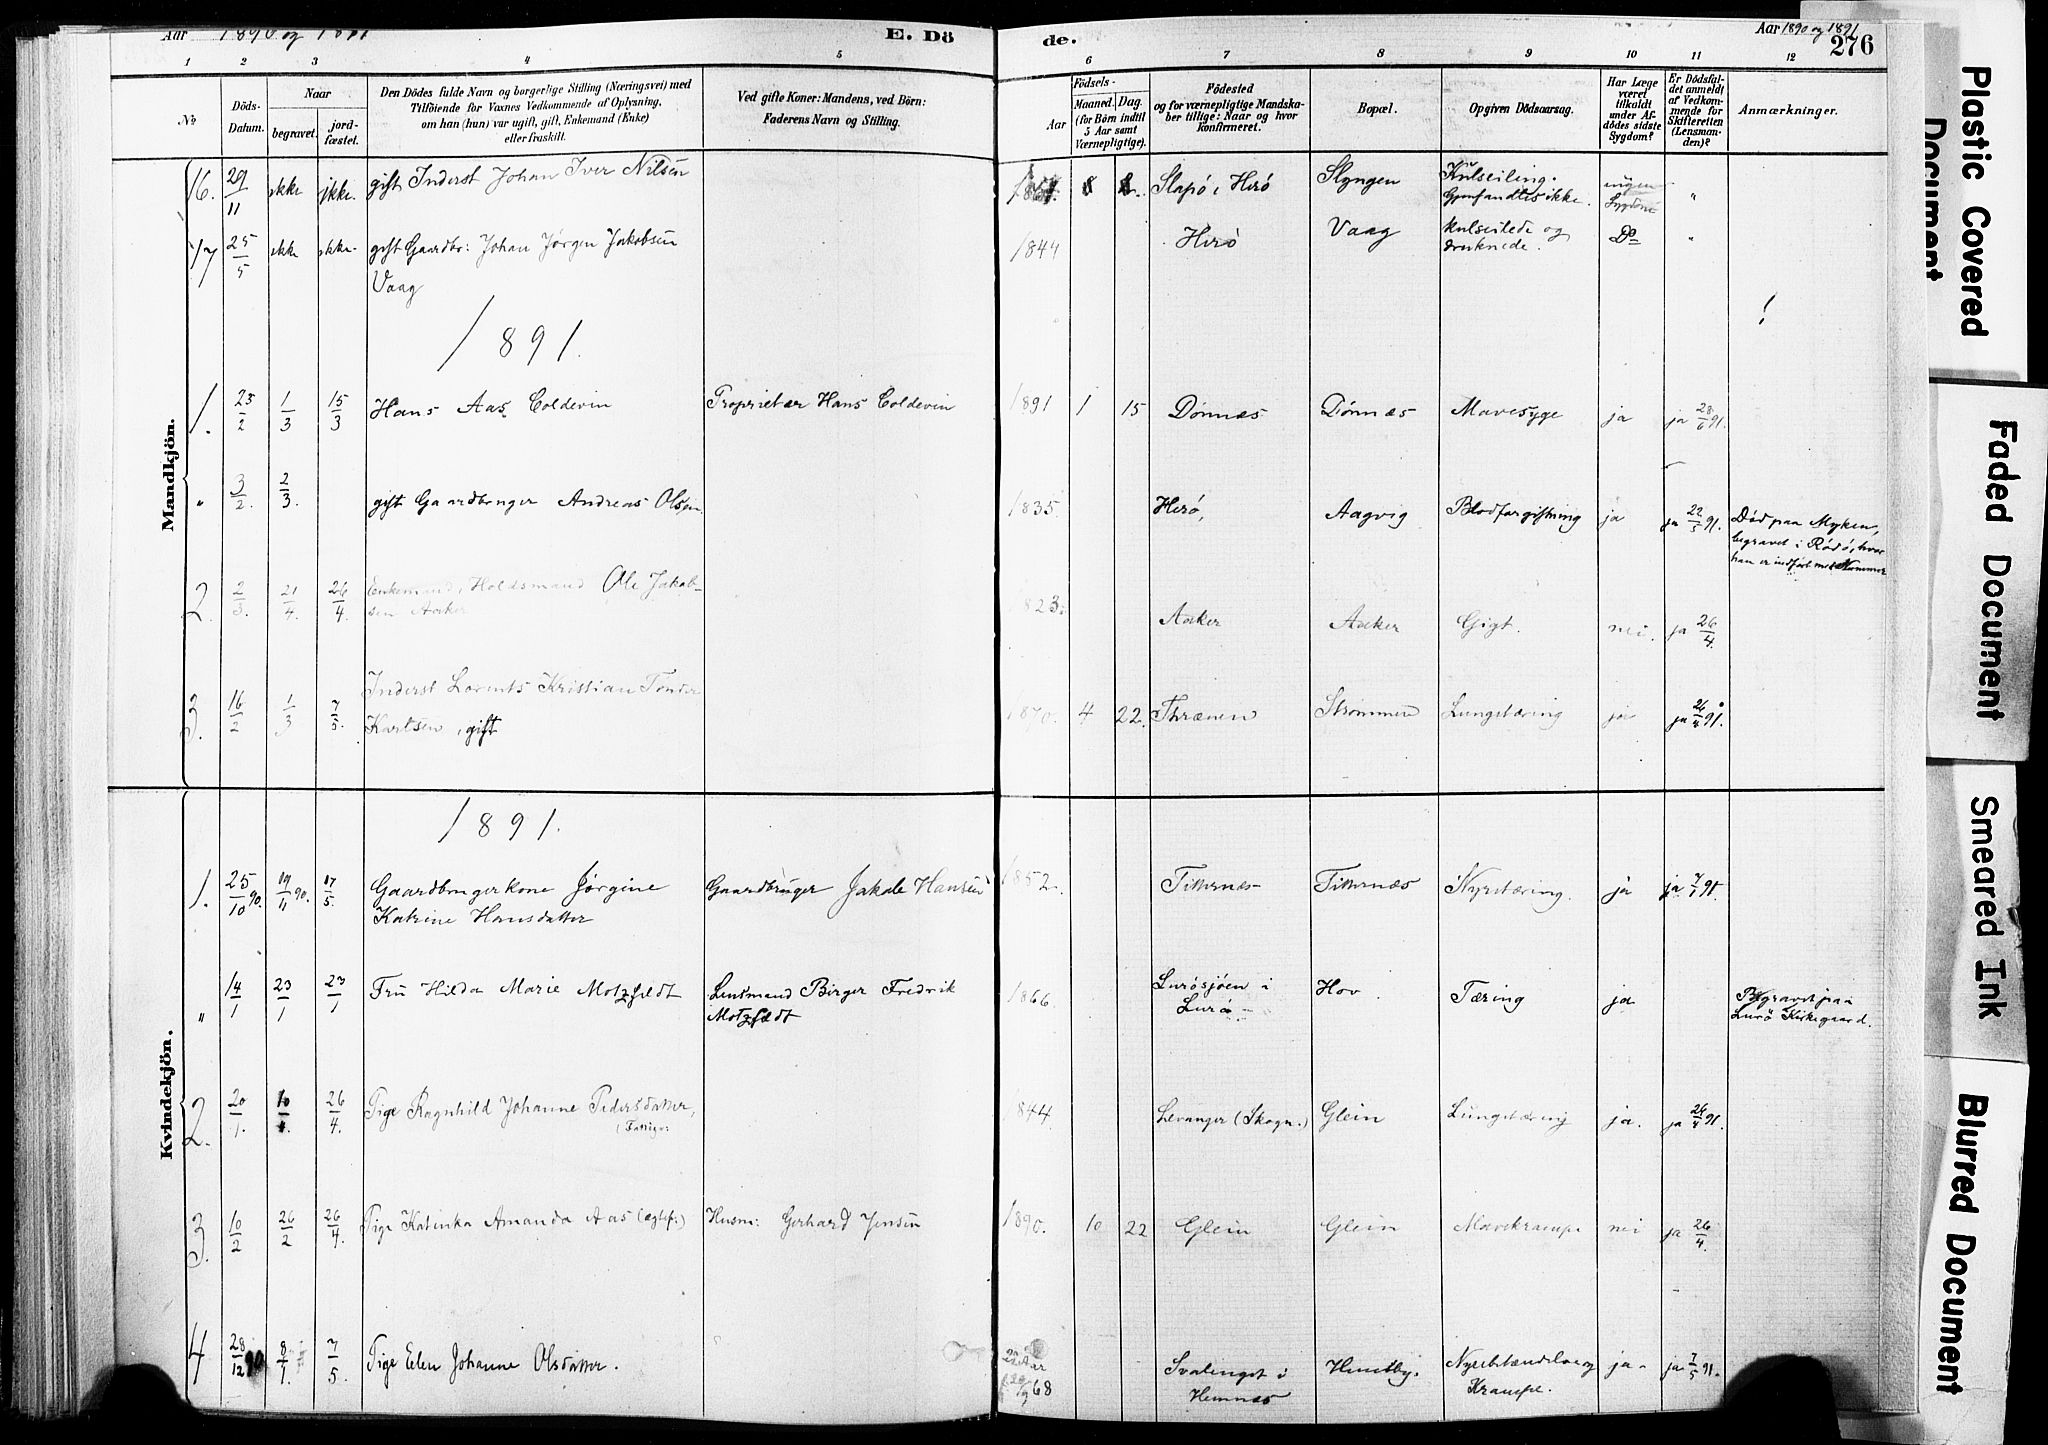 Aar 1890 og 1891
E. Dö
de.
Aar 1890 og 1891
276
1 2 3 4 5 6 7 8 9 10 11 12
No
Döds-Datum.
Naar
begravet.
jord-fæstet.
Den Dödes fulde Navn og borgerlige Stilling (Næringsvei) med
Tilföiende for Voxnes Vedkommende af Oplysning,
om han (hun) var ugift, gift, Enkemand (Enke)
eller fraskilt.
Ved gifte Koner: Mandens, ved Börn:
Faderens Navn og Stilling.
Födsels-
Aar
Maaned. Dag.
(for Börn indtil
5 Aar samt
Værnepligtige).
Födested
og for værnepligtige Mandska-
ber tillige: Naar og hvor
konfirmeret.
Bopæl.
Opgiven Dödsaarsag.
Har Læge
været
tilkaldt
under Af-
dödes sidste
Sygdom?
Er Dödsfal-
det anmeldt
af Vedkom-
mende for
Skifteretten
(Lensman-
den)?
Anmærkninger.
Mandkjön.
16. 29/11 ikke ikke. gift Inderst Johan Iver Nilsen Slapø i Herø Slyngen Kulseiling. Gjenfandtes ikke. ingen Sygdom "
17 25/5 ikke ikke gift Gaardbr: Johan Jørgen Jakobsen 1844 Herø Vaag kulseilede og druknede. Do "
Vaag
1891.
1. 23/2 1/3 15/3 Hans Aas Coldevin Proprietær Hans Coldevin 1891 1 15 Dønnæs Dønnæs Mavesyge ja ja 28/6 91.
" 3/2 2/3. gift Gaardbruger Andreas Olsen. 1835. Herø, Aagvig Blodforgiftning ja ja 22/5 91. Død paa Myken,
begravet i Rødø, hvor
han er indført med Nummer
2. 2/3. 21/4. 26/4. Enkemand, Holdsmand Ole Jakob-
sen Aaker 1823. Aaker Aaker Gigt. nei. ja 26/4.
3. 16/2 1/3 7/5. Inderst Lorents Kristian Tønder
Karlsen, gift 1870. 4 22. Thrænen Strømmen Lungetæring ja ja 26/4 91.
Kvindekjön.
1891.
1. 25/10 90. 19/11 90. 17/5. Gaardbrugerkone Jørgine Gaardbruger Jakob Hansen 1852. Titternæs Titternæs Nyretæring. ja ja 7/1 91.
Katrine Hansdatter
" 14/1 23/1 23/1 Fru Hilda Marie Motzfeldt Lensmand Birger Fredrik
Motzfeldt 1866 Lurøsjøen i
Lurø Hov. Tæring ja Begravet paa
Lurø Kirkegaard.
2. 20/1. 26/4. Pige Ragnhild Johanne Pedersdatter,
(Fattigv: 1844. Levanger (Skogn.) Glein Lungetæring ja. ja 26/4 91.
3. 10/2 26/2 26/4. Pige Katinka Amanda Aas (ægtef:) Husm: Gerhard Jensen 1890. 10 22 Glein Glein Mavekrampe nei ja 26/4.
4 28/12 90 8/1. 7/5 Pige Elen Johanne Olsdatter. 68 Svalenget i
Hemnæs Nyrebetændelse og
Krampe. ja. ja 7/5 91.
Plastic Covered
Document
Faded Document
Smeared Ink
Blurred Document